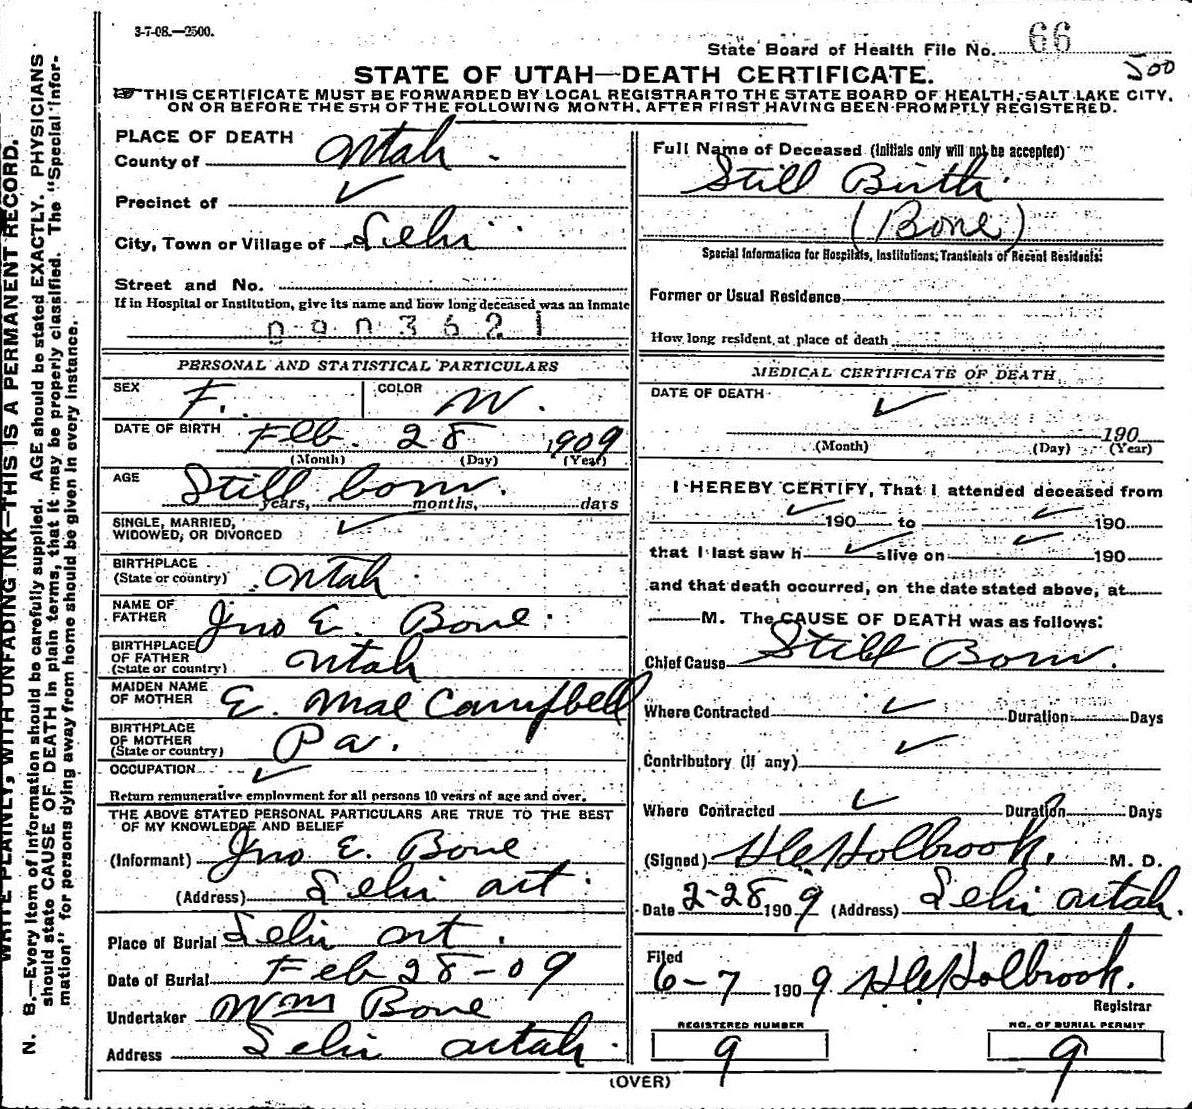 3-7-08.—2500.
State Board of Health File No. 66
500
STATE OF UTAH—DEATH CERTIFICATE.
THIS CERTIFICATE MUST BE FORWARDED BY LOCAL REGISTRAR TO THE STATE BOARD OF HEALTH, SALT LAKE CITY,
ON OR BEFORE THE 5TH OF THE FOLLOWING MONTH, AFTER FIRST HAVING BEEN PROMPTLY REGISTERED.
WRITE PLAINLY, WITH UNFADING INK—THIS IS A PERMANENT RECORD.
N. B.—Every Item of Information should be carefully supplied. AGE should be stated EXACTLY. PHYSICIANS
should state CAUSE OF DEATH in plain terms, that it may be properly classified. The "Special Infor-
mation" for persons dying away from home should be given in every instance.
PLACE OF DEATH
County of Utah
Precinct of ✓
City, Town or Village of Lehi
Street and No.
If in Hospital or Institution, give its name and how long deceased was an inmate
0903621
PERSONAL AND STATISTICAL PARTICULARS
SEX F. COLOR W.
DATE OF BIRTH Feb. 28 1909
(Month) (Day) (Year)
AGE Still born.
years, months, days
SINGLE, MARRIED,
WIDOWED, OR DIVORCED ✓
BIRTHPLACE
(State or country) Utah
NAME OF
FATHER Jno E. Bone.
BIRTHPLACE
OF FATHER
(State or country) Utah
MAIDEN NAME
OF MOTHER E. Mae Campbell
BIRTHPLACE
OF MOTHER
(State or country) Pa.
OCCUPATION ✓
Return remunerative employment for all persons 10 years of age and over.
THE ABOVE STATED PERSONAL PARTICULARS ARE TRUE TO THE BEST
OF MY KNOWLEDGE AND BELIEF
(Informant) Jno E. Bone
(Address) Lehi Ut.
Place of Burial Lehi Ut.
Date of Burial Feb 28-09
Undertaker Wm Bone
Address Lehi Utah.
Full Name of Deceased (Initials only will not be accepted)
Still Birth.
(Bone)
Special Information for Hospitals, Institutions, Transients or Recent Residents:
Former or Usual Residence
How long resident at place of death
MEDICAL CERTIFICATE OF DEATH
DATE OF DEATH ✓
190
(Month) (Day) (Year)
I HEREBY CERTIFY, That I attended deceased from
✓ 190 to ✓ 190
that I last saw h ✓ alive on ✓ 190
and that death occurred, on the date stated above, at
M. The CAUSE OF DEATH was as follows:
Chief Cause Still Born.
Where Contracted ✓ Duration Days
Contributory (if any) ✓
Where Contracted ✓ Duration Days
(Signed) Holbrook. M. D.
Date 2-28 1909 (Address) Lehi Utah.
Filed
6-7 1909 Holbrook.
Registrar
REGISTERED NUMBER
9
NO. OF BURIAL PERMIT
9
(OVER)